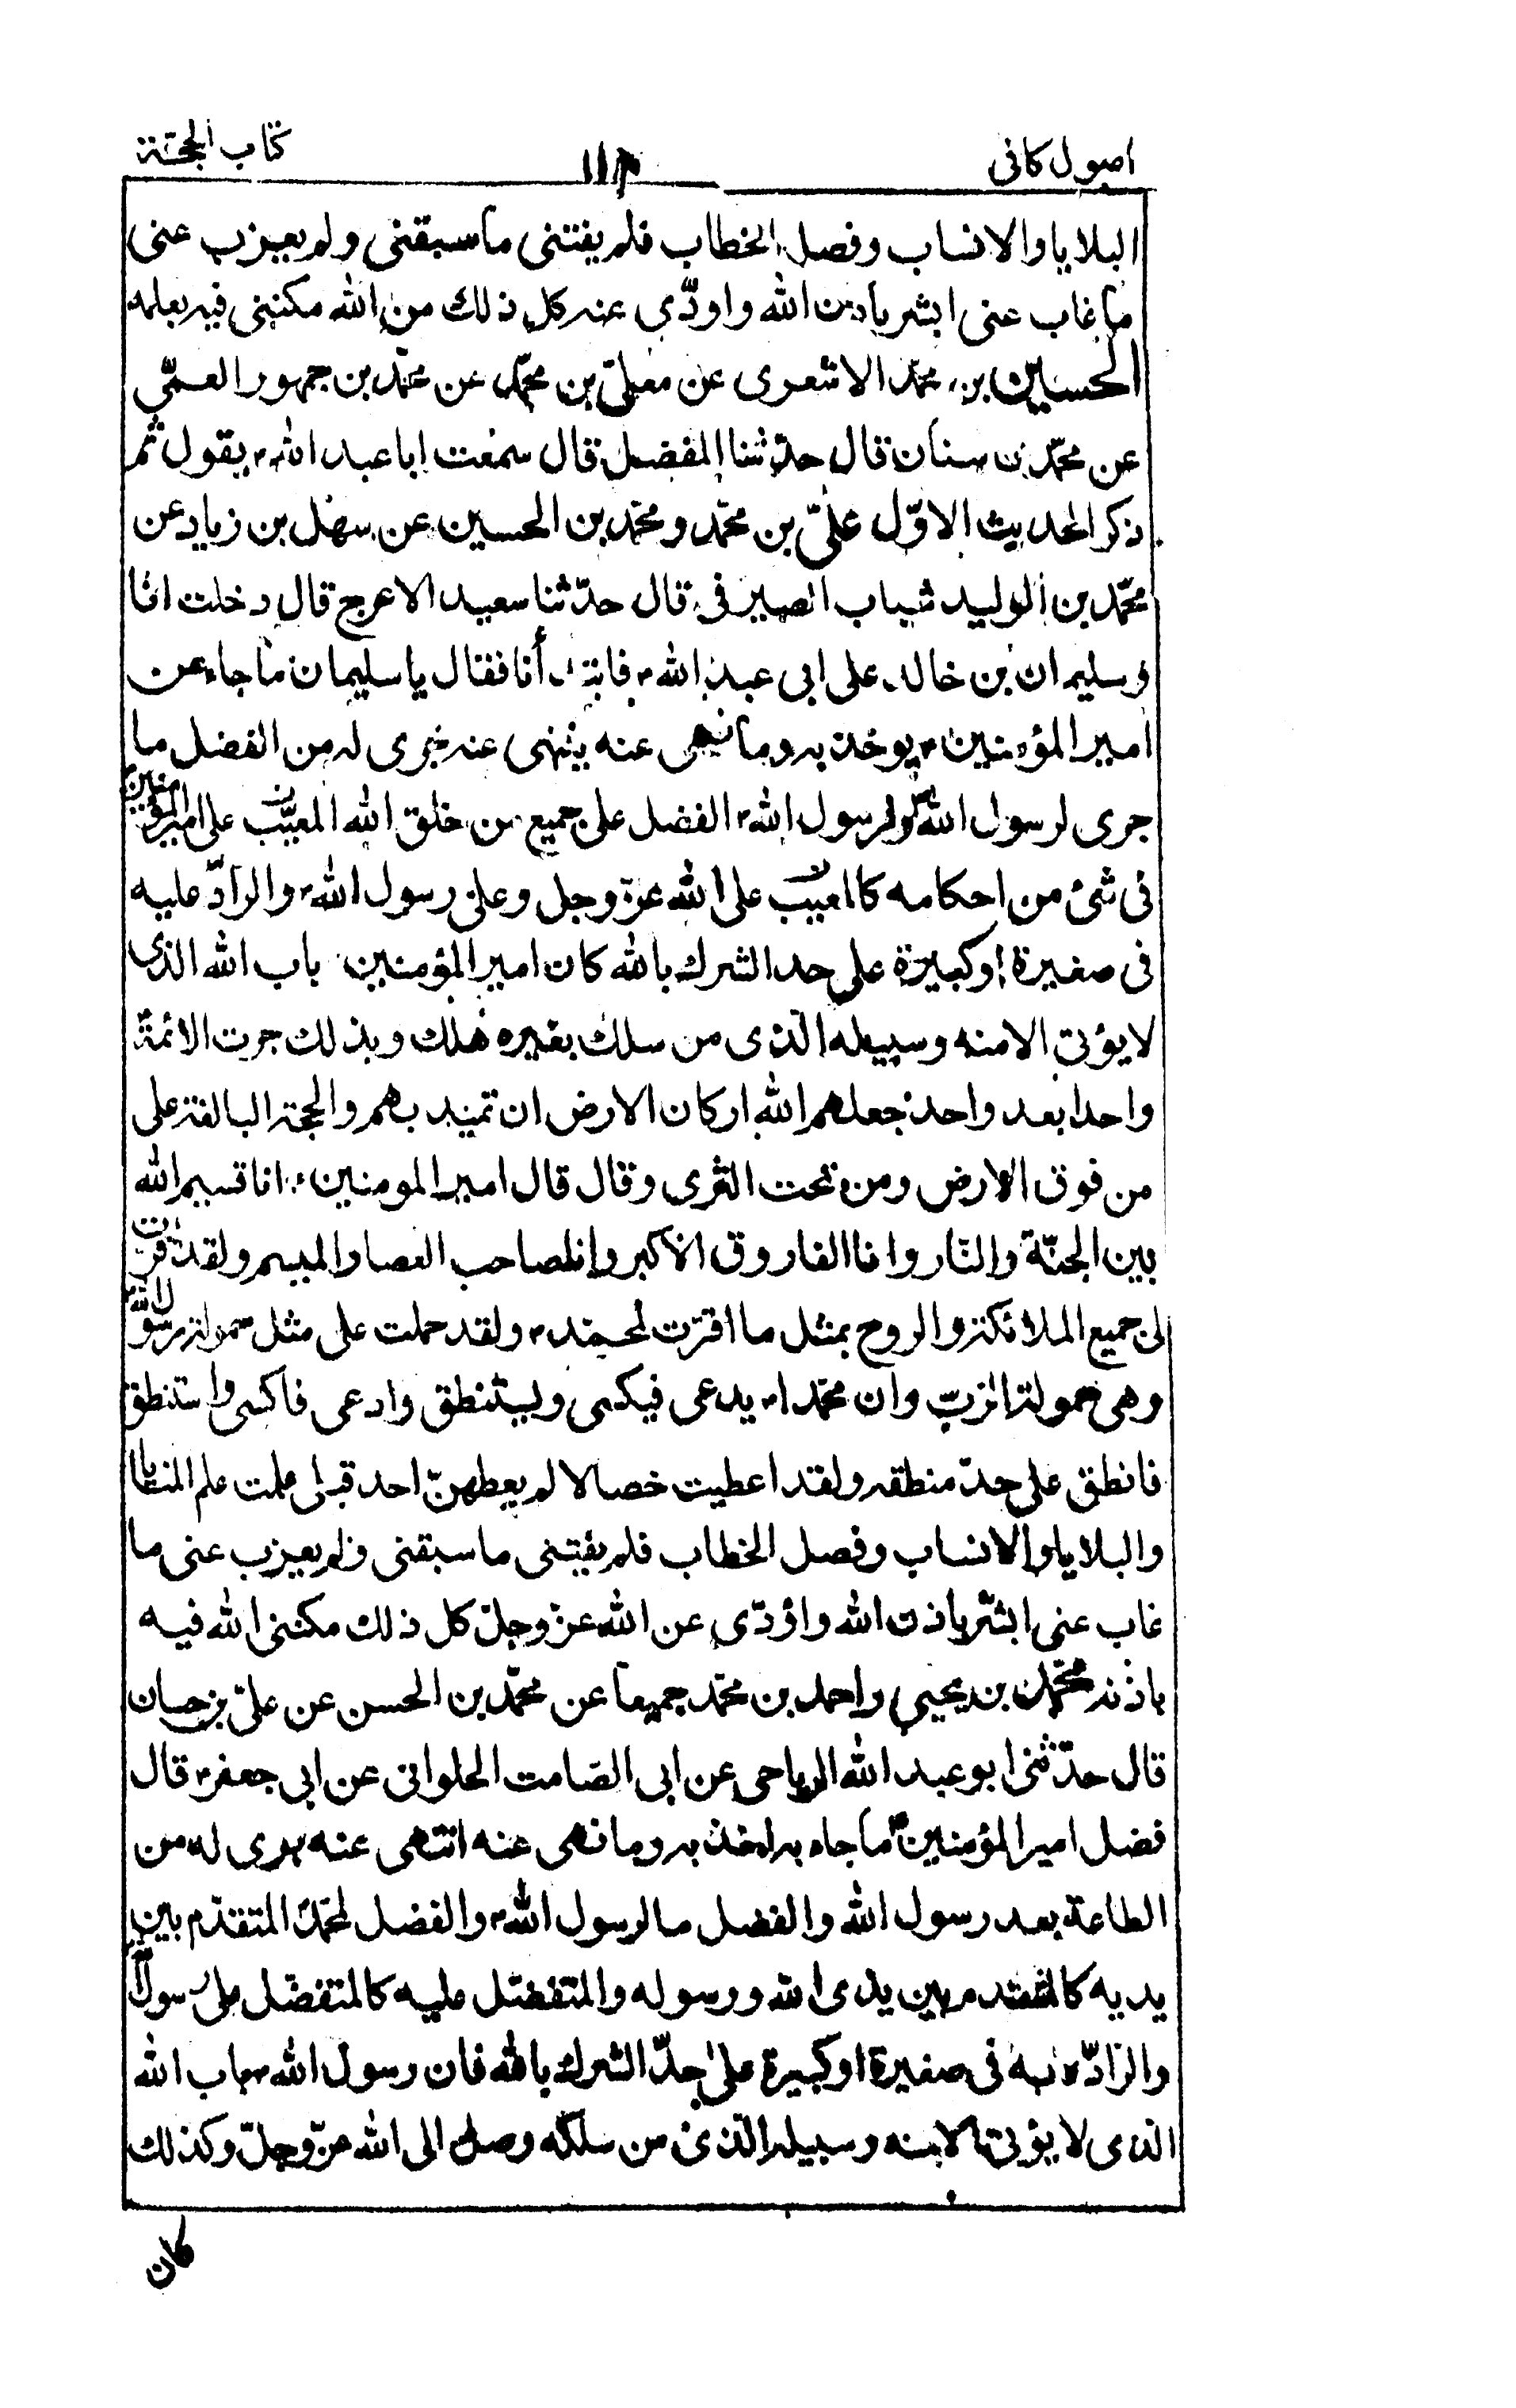 اصول كافى
١١٣
كتاب الحجّة
البلايا والانساب وفصل الخطاب فلم يفتنى ما سبقنى ولم يعزب عنى
ما غاب عنى ابشر باذن الله واودّى عنه كل ذلك من الله مكننى فيه بعلمه
الحسين بن محمّد الاشعرى عن معلّى بن محمّد عن محمّد بن جمهور العمّى
عن محمّد بن سنان قال حدّثنا المفضل قال سمعت ابا عبد الله ع يقول ثم
ذكر الحديث الاوّل علىّ بن محمّد ومحمّد بن الحسين عن سهل بن زياد عن
محمّد بن الوليد شباب الصيرفى قال حدّثنا سعيد الاعرج قال دخلت انا
وسليمان بن خالد على ابى عبد الله ع فابتدأنا فقال يا سليمان ما جاء عن
امير المؤمنين ع يوخذ به وما نهى عنه ينتهى عنه جرى له من الفضل ما
جرى لرسول الله ص ولرسول الله ص الفضل على جميع من خلق الله المعيّب على امير المؤمنين
فى شئ من احكامه كالمعيب على الله عزّ وجل وعلى رسول الله ص والرادّ عليه
فى صغيرة او كبيرة على حد الشرك بالله كان امير المؤمنين باب الله الذى
لا يؤتى الا منه وسبيله الّذى من سلك بغيره هلك وبذلك جرت الائمّة
واحدا بعد واحد جعلهم الله اركان الارض ان تميد بهم والحجة البالغة على
من فوق الارض ومن تحت الثرى وقال قال امير المومنين ع انا قسيم الله
بين الجنّة والنّار وانا الفاروق الاكبر وانا صاحب العصا والميسم ولقد اقرّت
لى جميع الملائكة والروح بمثل ما اقرّت لمحمّد ص ولقد حملت على مثل حمولة رسول الله ص
وهى حمولة الرّبّ وان محمّدا ص يدعى فيكسى ويستنطق وادعى فاكسى واستنطق
فانطق على حدّ منطقه ولقد اعطيت خصالا لم يعطهنّ احد قبلى علمت علم المنايا
والبلايا والانساب وفصل الخطاب فلم يفتنى ما سبقنى ولم يعزب عنى ما
غاب عنى ابشّر باذن الله واؤدّى عن الله عزّ وجلّ كل ذلك مكننى الله فيه
باذنه محمّد بن يحيى واحمد بن محمّد جميعا عن محمّد بن الحسن عن علىّ بن حسان
قال حدّثنى ابو عبد الله الرياحى عن ابى الصّامت الحلوانى عن ابى جعفر ع قال
فضل امير المؤمنين ع ما جاء به اخذ به وما نهى عنه انتهى عنه جرى له من
الطاعة بعد رسول الله والفضل ما لرسول الله ص والفضل لمحمّد المتقدّم بين
يديه كالمتقدم بين يدى الله ورسوله والمتفضّل عليه كالمتفضّل على رسول الله
والرّادّ عليه فى صغيرة او كبيرة على حدّ الشرك بالله فان رسول الله ص باب الله
الذى لا يؤتى الا منه وسبيله الّذى من سلكه وصل الى الله عزّ وجلّ وكذلك
كان